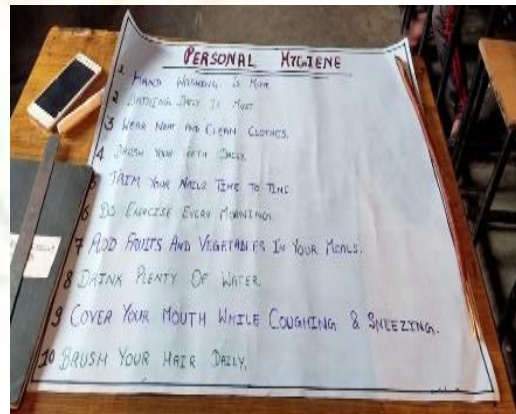 PERSONAL HYGIENE
1 HAND WASHING IS MUST
2 BATHING DAILY IS MUST
3 WEAR NEAT AND CLEAN CLOTHES.
4 BRUSH YOUR TEETH DAILY.
5 TRIM YOUR NAILS TIME TO TIME
6 DO EXERCISE EVERY MORNING.
7 ADD FRUITS AND VEGETABLES IN YOUR MEALS.
8 DRINK PLENTY OF WATER.
9 COVER YOUR MOUTH WHILE COUGHING & SNEEZING.
10 BRUSH YOUR HAIR DAILY.